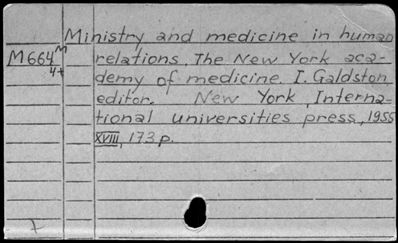 Ministry and medicine in human
M664M relations. The New York aca-
4+ demy of medicine. I. Galdston
editor. New York, Interna-
tional universities press, 1955
XVIII, 173 p.